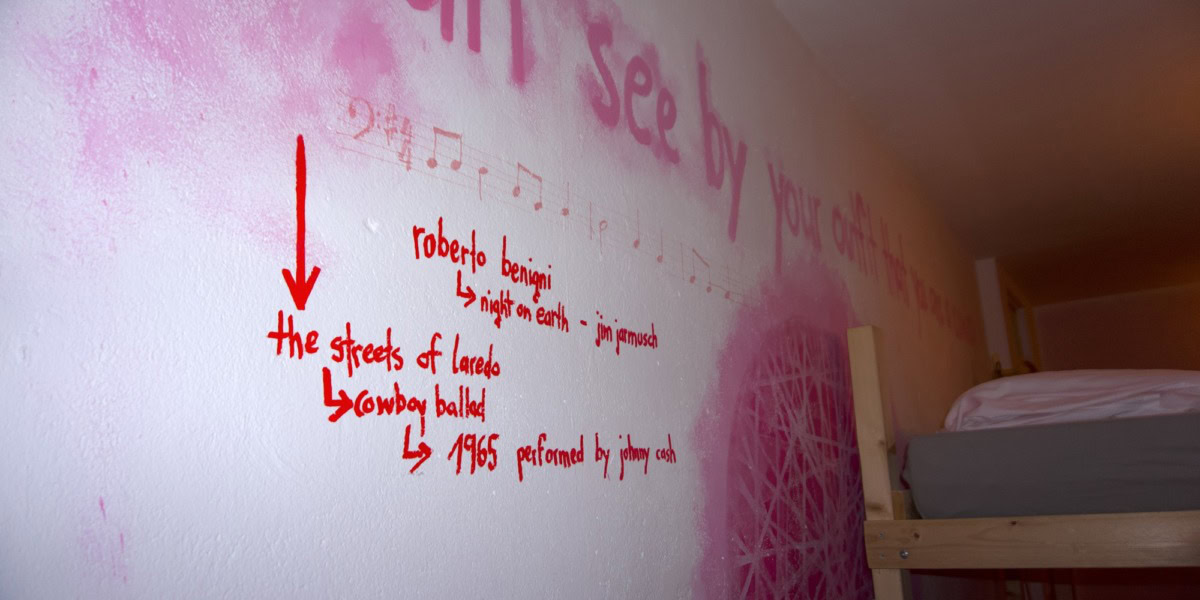 see by your outfit that
roberto benigni
night on earth - jim jarmusch
the streets of laredo
cowboy ballad
1965 performed by johnny cash